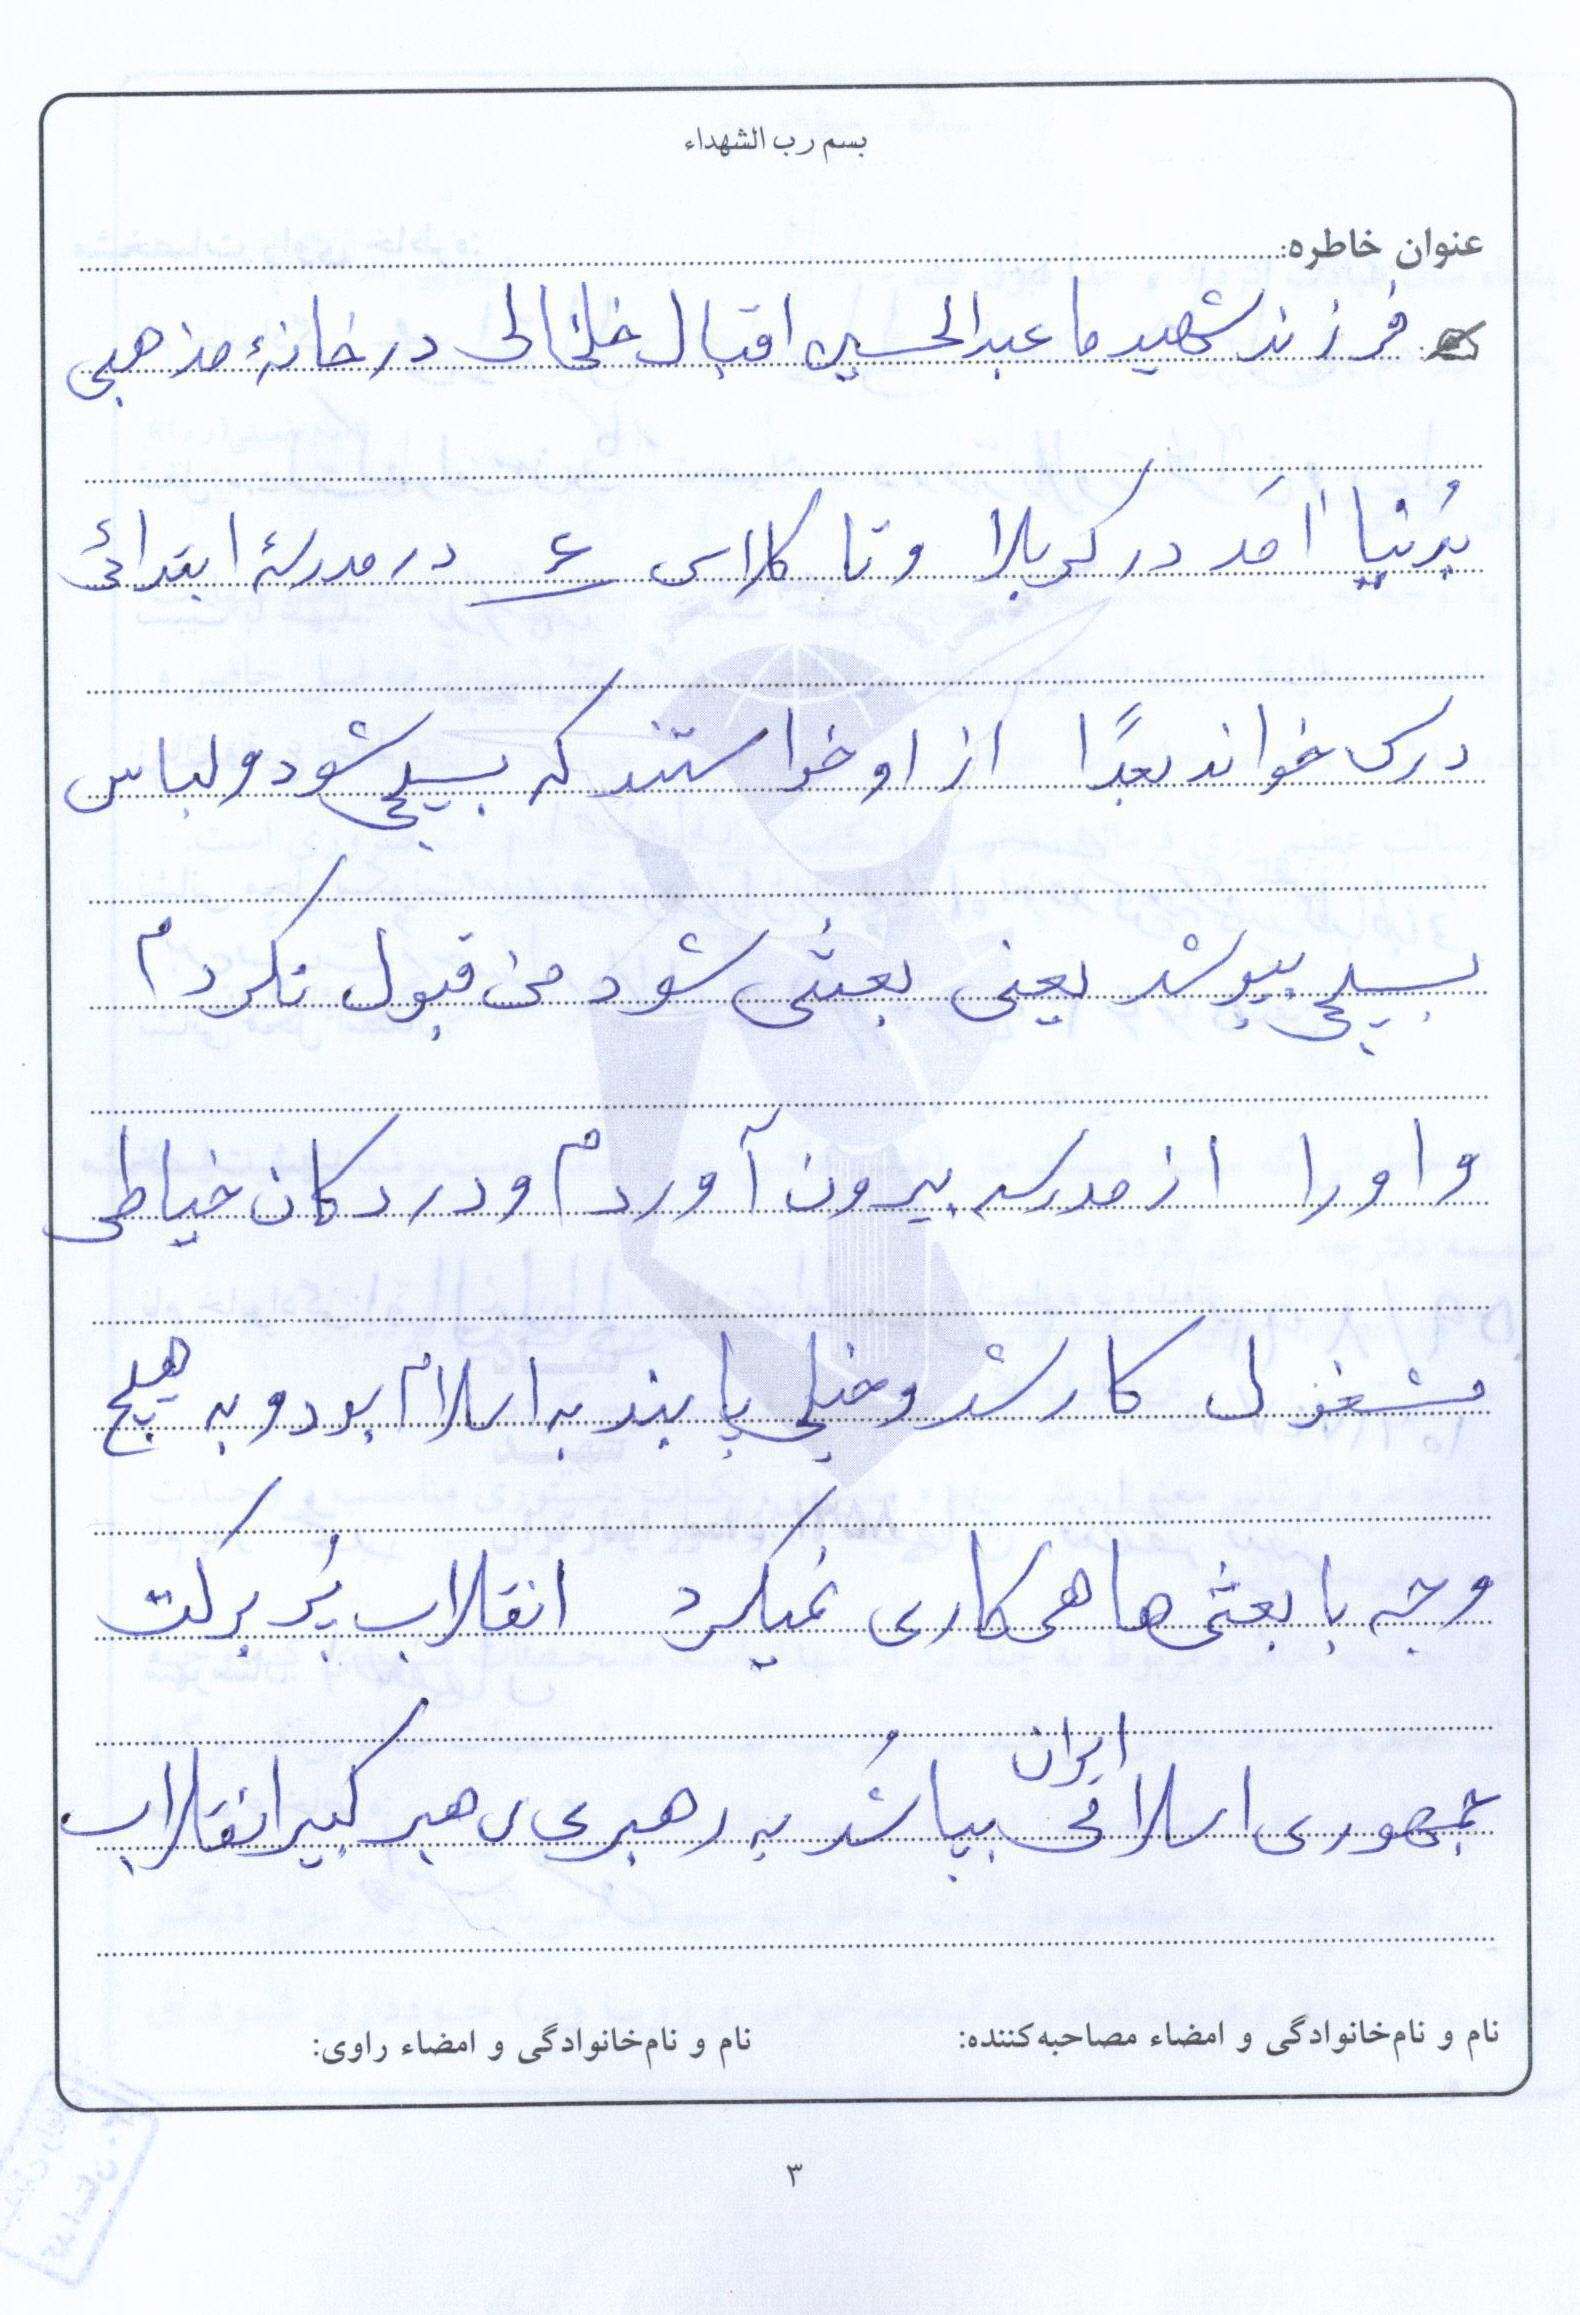 بسم رب الشهداء
عنوان خاطره:
فرزند شهید ما عبدالحسین اقبال خلخالی در خانهٔ مذهبی
بدُنیا آمَد در کربلا و تا کلاس ۶ در مدرسهٔ ابتدائی
درس خواند بعدًا از او خواستند که بسیجی شود و لباس
بسیجی بپوشد یعنی بعثی شود من قبول نکردم
و او را از مدرسه بیرون آوردم و در دکان خیاطی
مشغول کار شد و خیلی پابند به اسلام بود و به هیچ
وجه با بعثی‌ها همکاری نمیکرد انقلاب پُر برکت
جمهوری اسلامی ایران بپا شُد به رهبری رهبر کبیر انقلاب
نام و نام‌خانوادگی و امضاء مصاحبه‌کننده: نام و نام‌خانوادگی و امضاء راوی:
۳